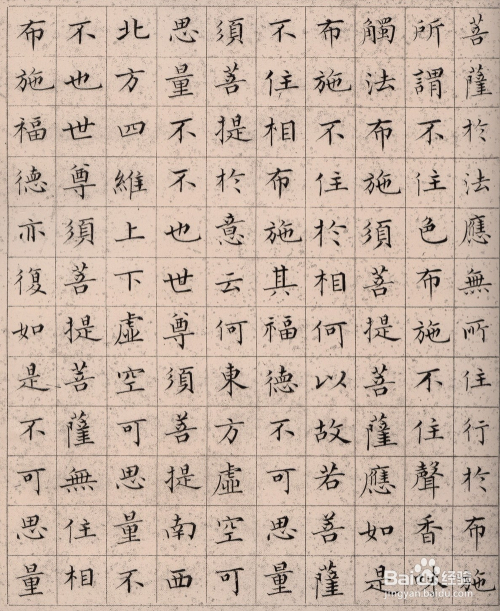 菩薩於法應無所住行於布施
所謂不住色布施不住聲香味
觸法布施須菩提菩薩應如是
布施不住於相何以故若菩薩
不住相布施其福德不可思量
須菩提於意云何東方虛空可
思量不不也世尊須菩提南西
北方四維上下虛空可思量不
不也世尊須菩提菩薩無住相
布施福德亦復如是不可思量
Baidu经验
jingyan.baidu.com